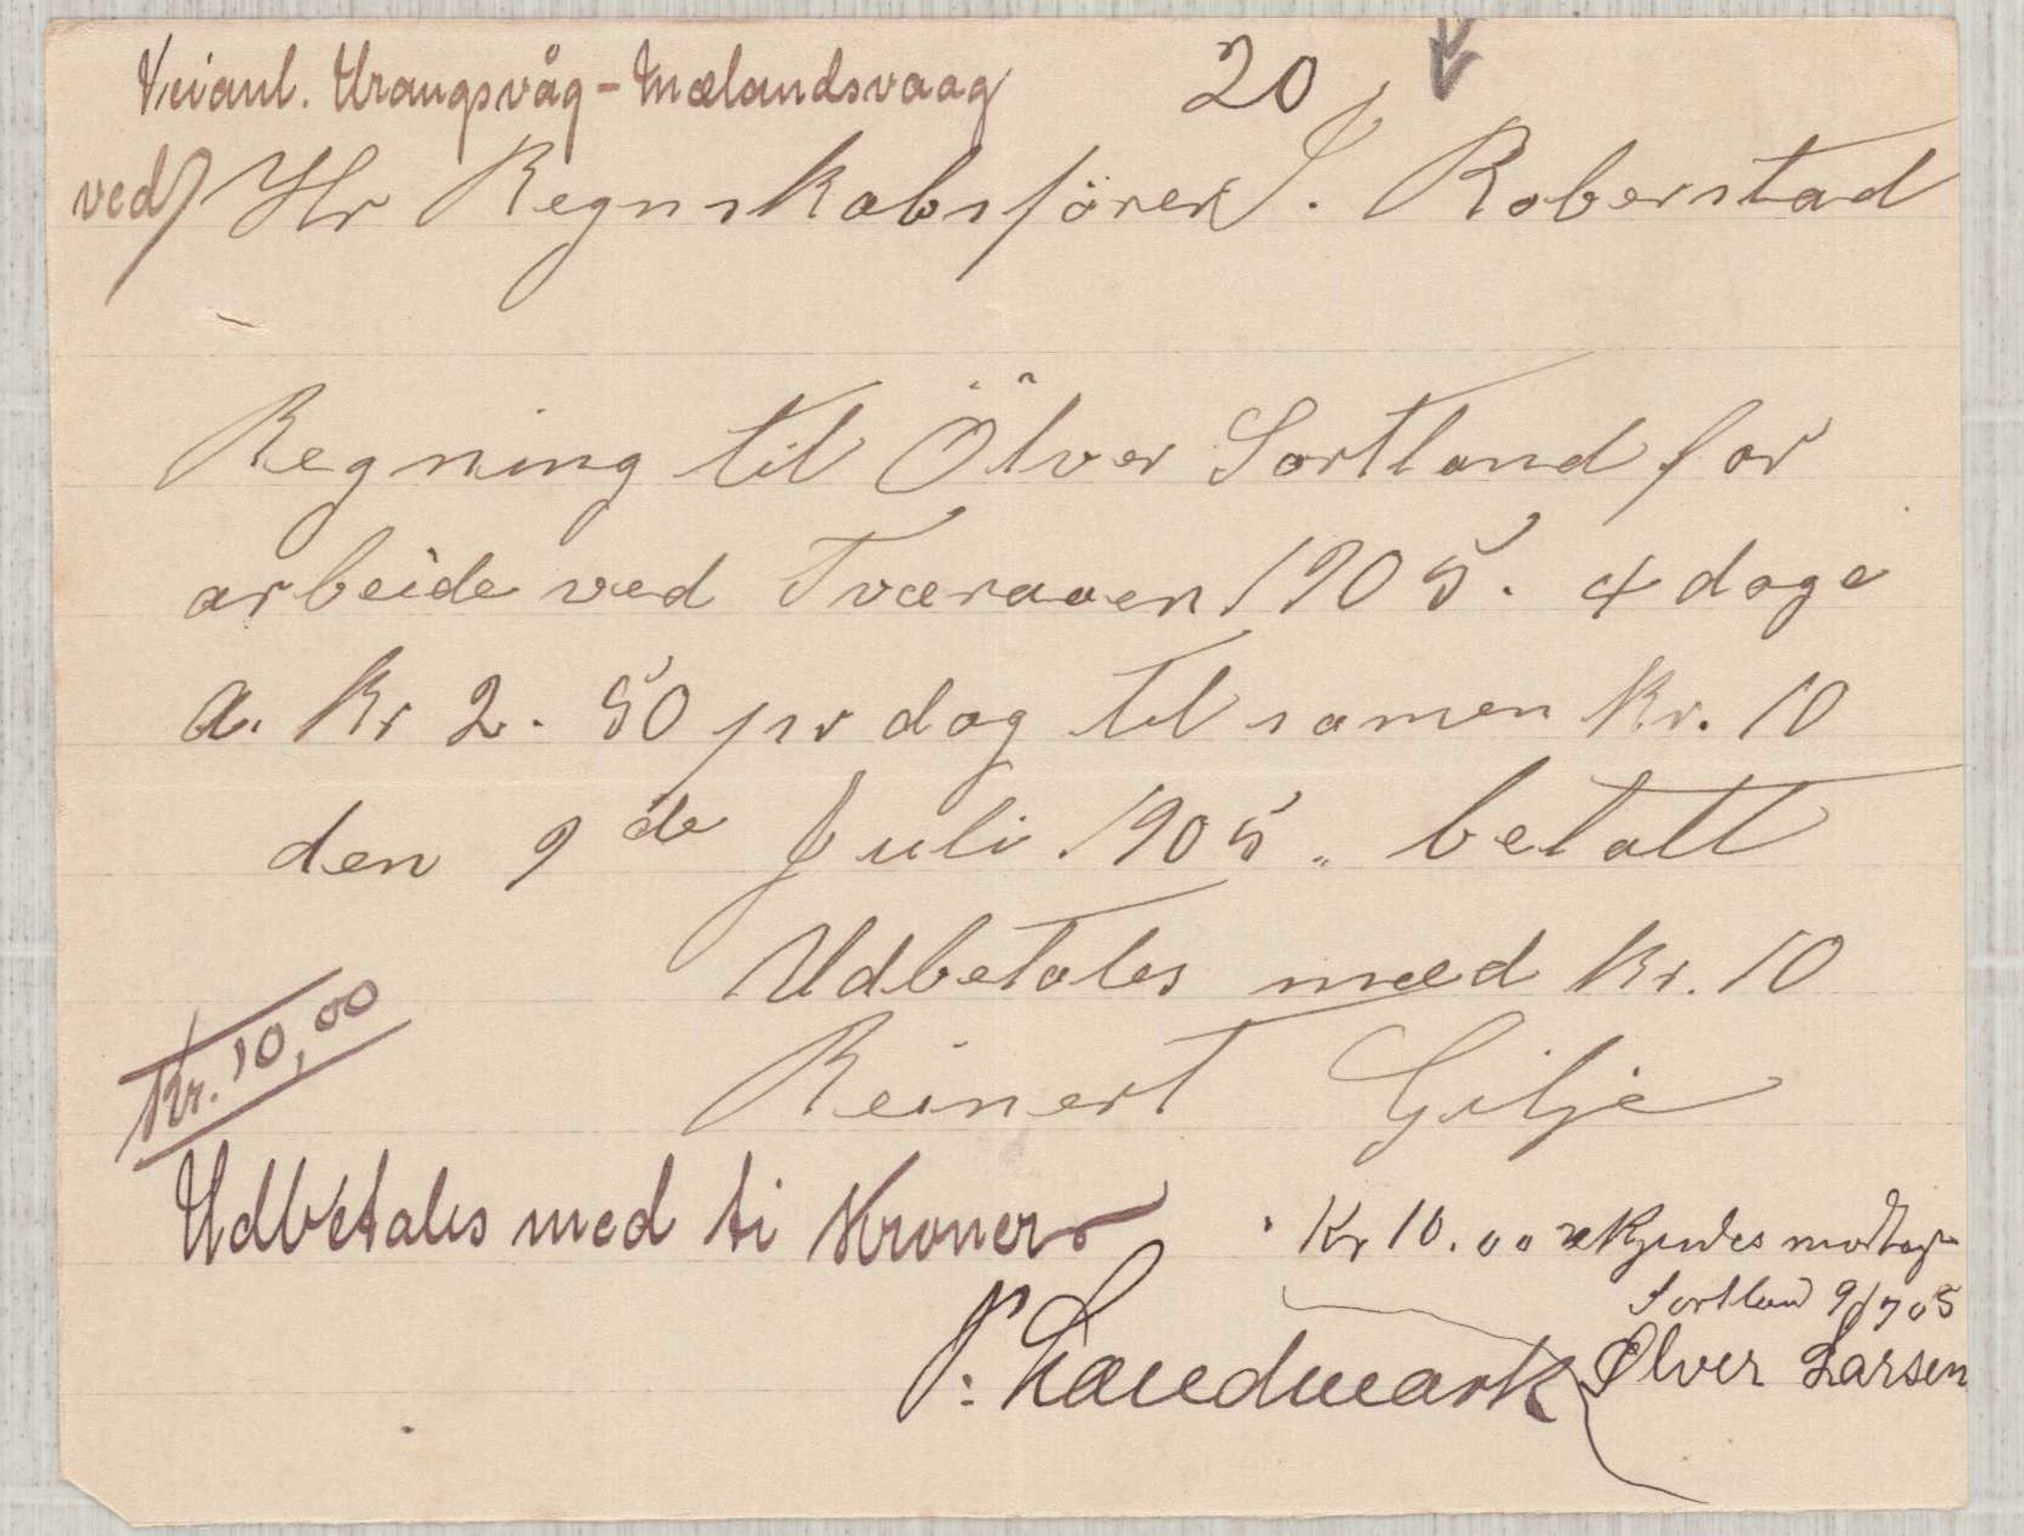 Veianl. Urangsvåg - Mælandsvaag 20
ved/ Hr Regnskabsförer J. Roberstad
Regning til Ölver Sortland for
arbeide ved Tværaaen 1905. 4 dage
a. Kr 2. 50 pr dag til samen Kr. 10
den 9de Juli 1905. betalt
Udbetales med Kr. 10
Kr. 10,00
Reinert Gilje
Udbetales med ti Kroner
Kr 10.00 erkjendes modtaget
Sortland 9/7 05
P. Landmark
Ølver Larsen